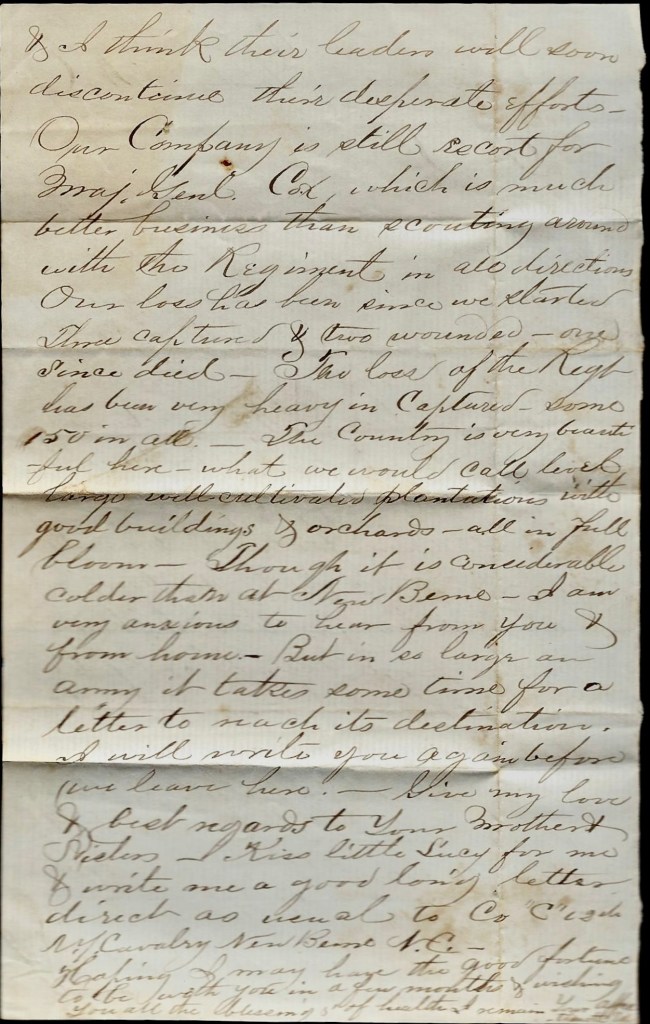 & I think their leaders will soon
discontinue their desperate efforts -
Our Company is still escort for
Maj. Genl. Cox, which is much
better business than scouting around
with the Regiment in all directions
Our loss has been since we started
Three captured & two wounded - one
since died - The loss of the Regt
has been very heavy in Captured - some
150 in all. - The Country is very beauti
ful here - what we would call level
large well cultivated plantations with
good buildings & orchards - all in full
bloom - Though it is considerable
colder than at New Berne - I am
very anxious to hear from you &
from home. - But in so large an
army it takes some time for a
letter to reach its destination.
I will write you again before
we leave here. - Give my love
& best regards to Your Mother &
Sisters - Kiss little Lucy for me
& write me a good long letter
direct as usual to Co "C" 12th
NY Cavalry New Berne N.C. -
Hoping I may have the good fortune
to be with you in a few months & wishing
you all the blessings of health I remain